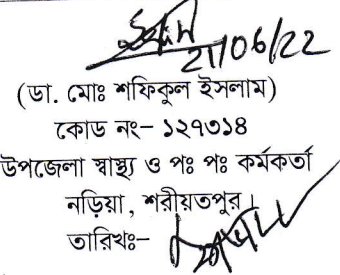 21/06/22
(ডা. মোঃ শফিকুল ইসলাম)
কোড নং– ১২৭৩১৪
উপজেলা স্বাস্থ্য ও পঃ পঃ কর্মকর্তা
নড়িয়া, শরীয়তপুর।
তারিখঃ–